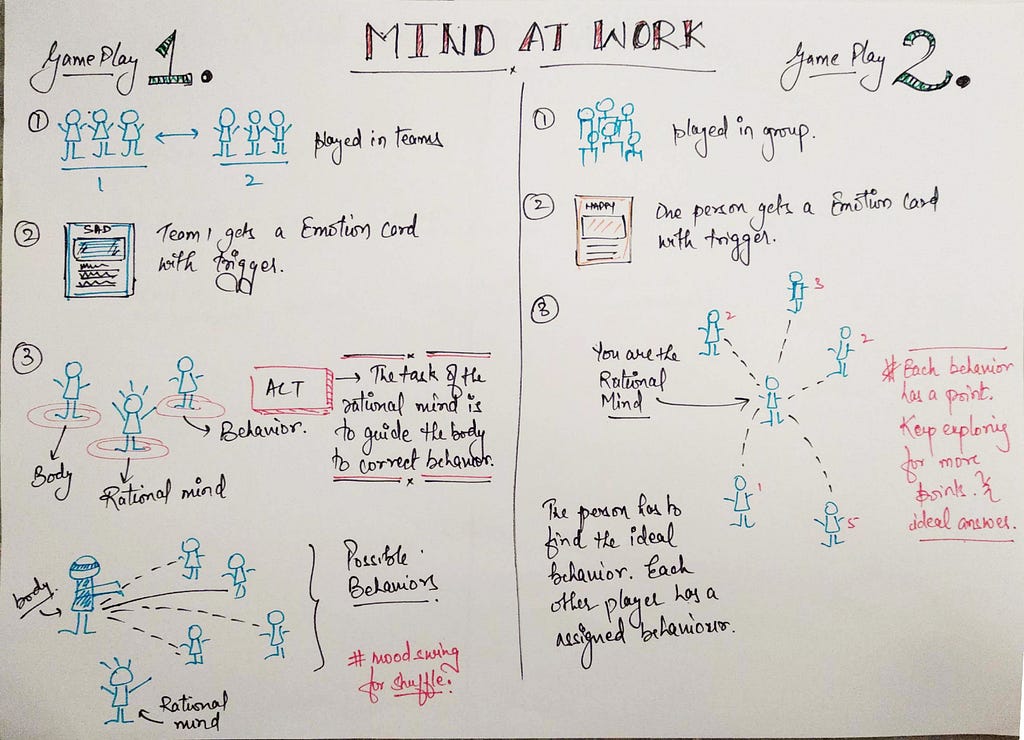 MIND AT WORK
Game Play 1.
① played in teams
1
2
②
SAD
Team 1 gets a Emotion Card
with trigger.
③
Body
Rational mind
Behavior.
ACT
The task of the
rational mind is
to guide the body
to correct behavior.
body.
Possible
Behaviors
# mood swing
for shuffle?
Rational
mind
Game Play 2.
① played in group.
②
HAPPY
One person gets a Emotion Card
with trigger.
③
You are the
Rational
Mind
3
2
2
1
5
# Each behavior
has a point.
Keep exploring
for more
points. &
ideal answer.
The person has to
find the ideal
behavior. Each
other player has a
assigned behaviour.